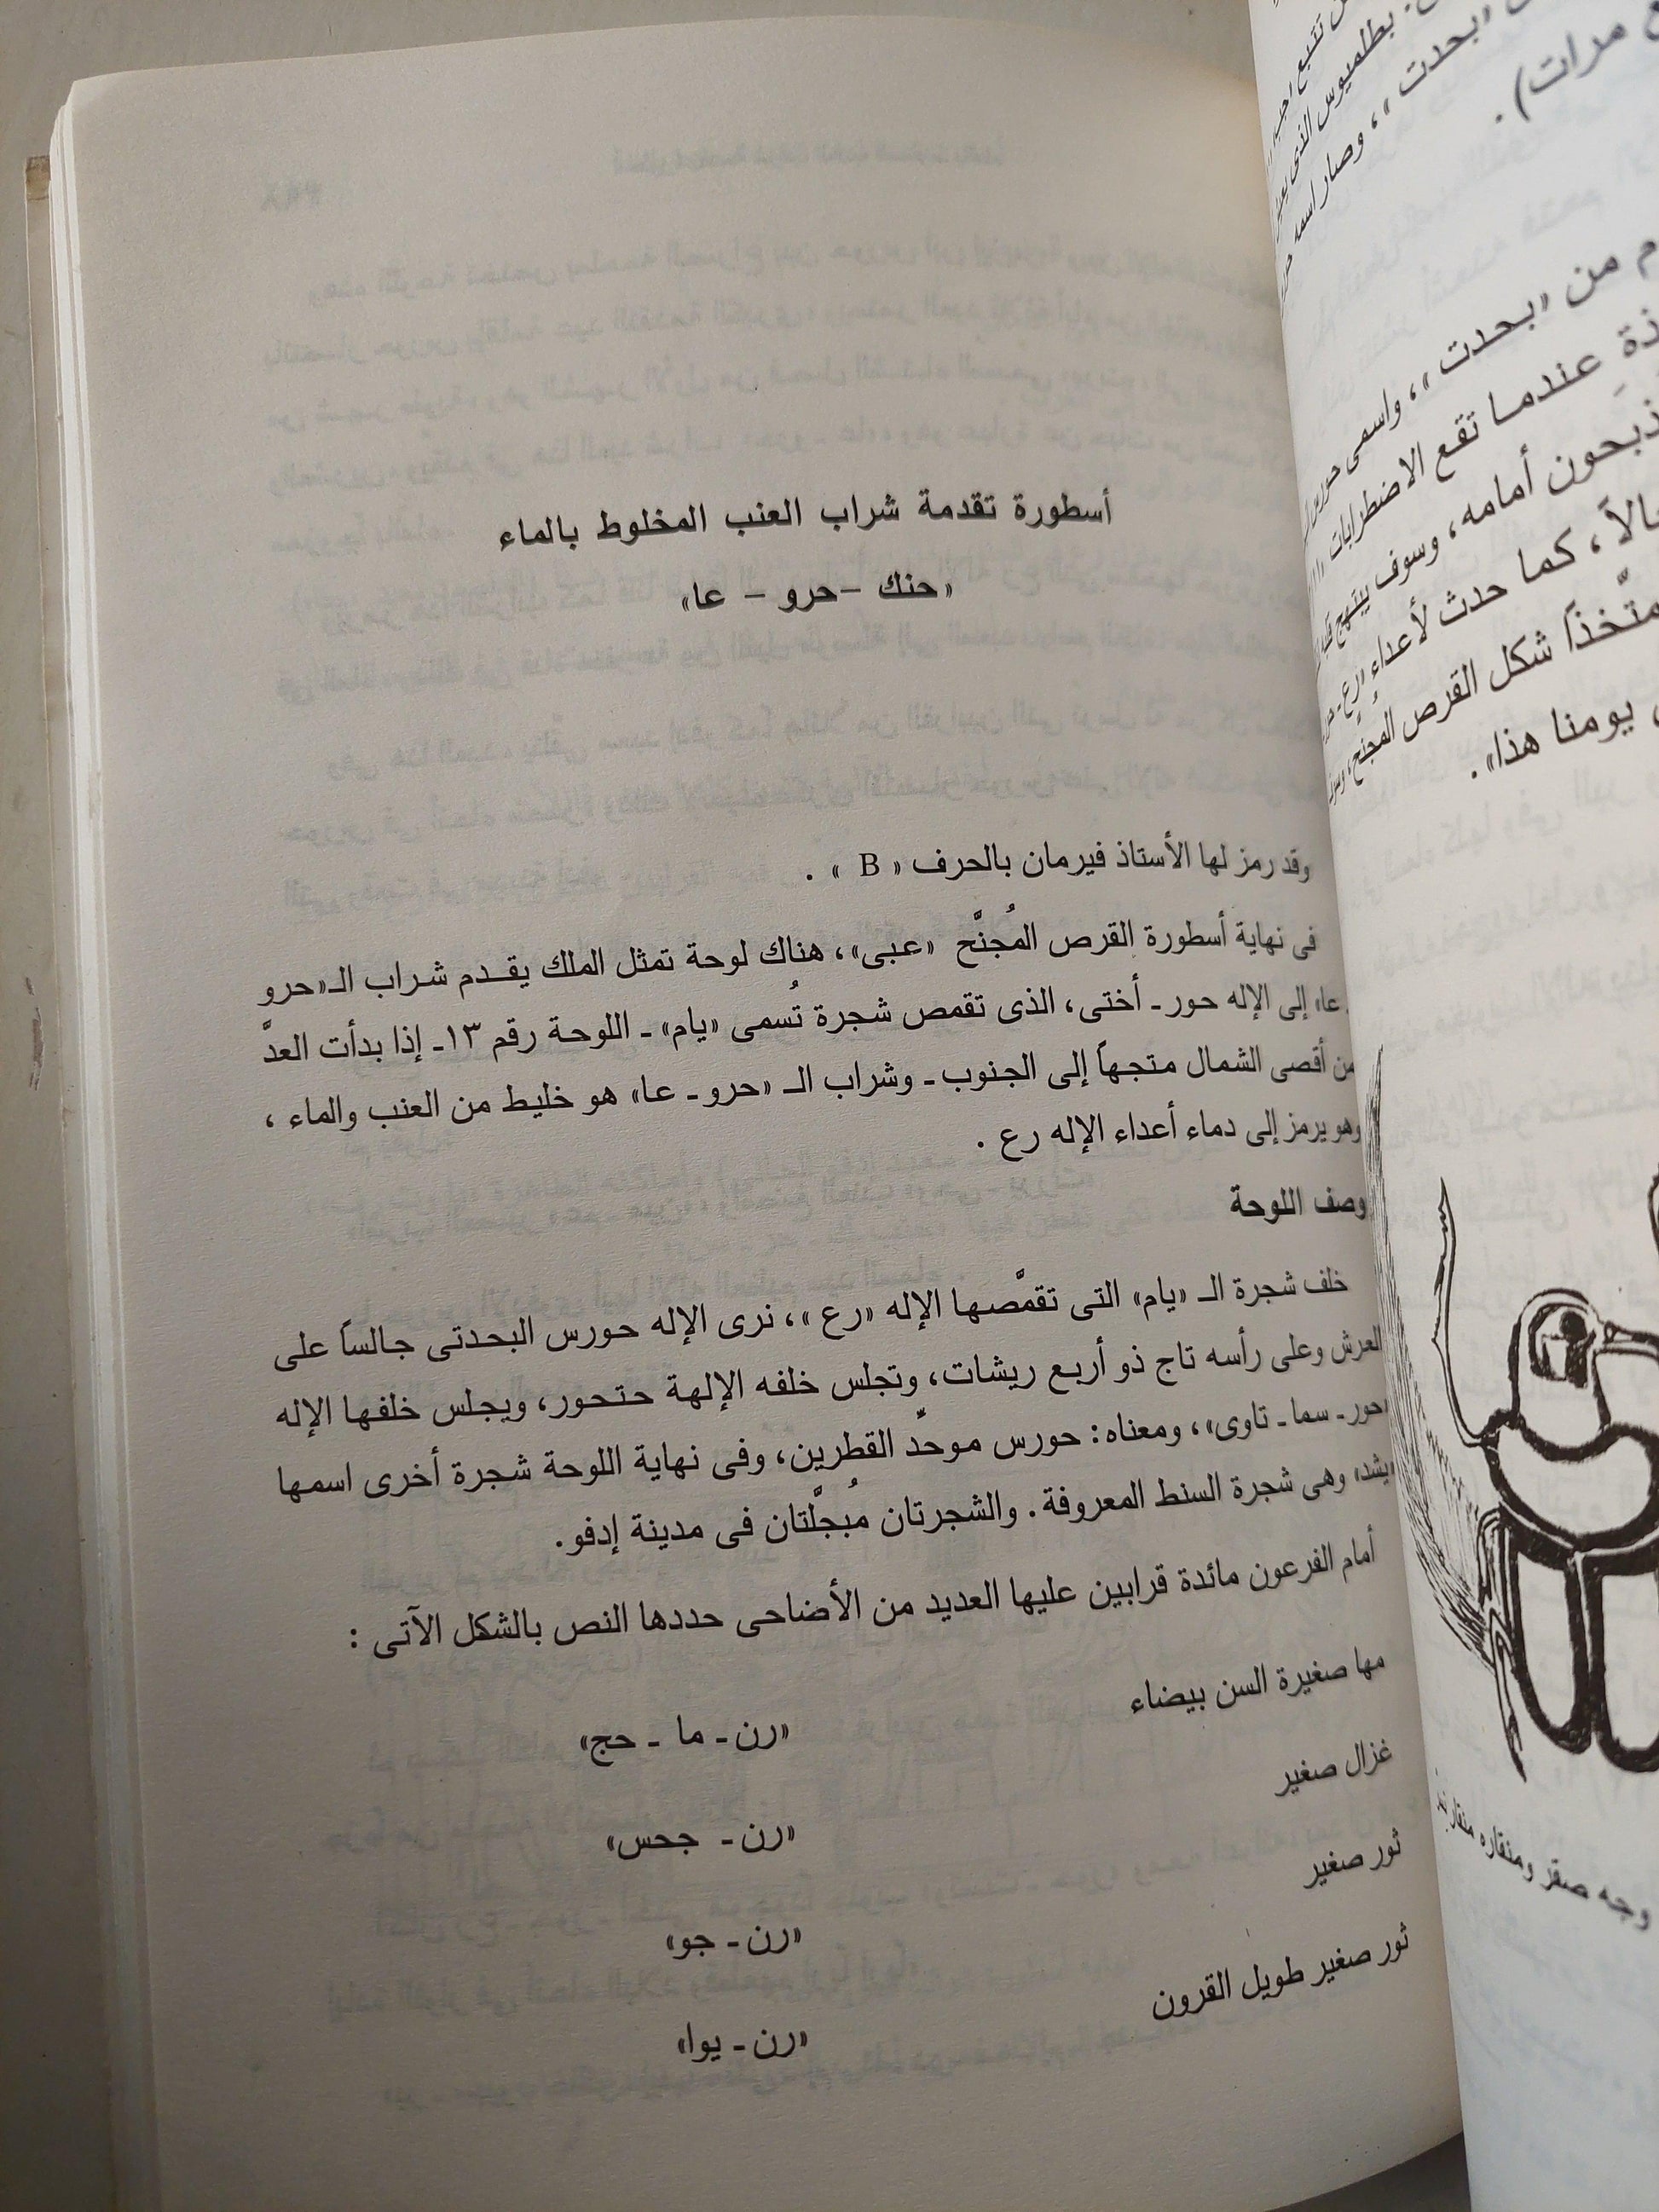 أسطورة تقدمة شراب العنب المخلوط بالماء
«حنك - حرو - عا»
وقد رمز لها الأستاذ فيرمان بالحرف « B » .
فى نهاية أسطورة القرص المُجنَّح «عبى»، هناك لوحة تمثل الملك يقدم شراب الـ«حرو
ـ عا» إلى الإله حور ـ أختى، الذى تقمص شجرة تُسمى «يام» ـ اللوحة رقم ١٣ـ إذا بدأت العدَّ
من أقصى الشمال متجهاً إلى الجنوب ـ وشراب الـ «حرو ـ عا» هو خليط من العنب والماء ،
وهو يرمز إلى دماء أعداء الإله رع .
وصف اللوحة
خلف شجرة الـ «يام» التى تقمَّصها الإله «رع »، نرى الإله حورس البحدتى جالساً على
العرش وعلى رأسه تاج ذو أربع ريشات، وتجلس خلفه الإلهة حتحور، ويجلس خلفها الإله
«حور ـ سما ـ تاوى»، ومعناه: حورس موحِّد القطرين، وفى نهاية اللوحة شجرة أخرى اسمها
«يشد» وهى شجرة السنط المعروفة. والشجرتان مُبجلَّتان فى مدينة إدفو.
أمام الفرعون مائدة قرابين عليها العديد من الأضاحى حددها النص بالشكل الآتى :
مها صغيرة السن بيضاء «رن ـ ما ـ حج»
غزال صغير «رن ـ جحس»
ثور صغير «رن ـ جو»
ثور صغير طويل القرون «رن ـ يوا»
بطلميوس الذى
«بحدت »، وصار اسمه
مرات).
م من «بحدت »، واسمى
عندما تقع الاضطرابات
يذبحون أمامه، وسوف يبتهج
كما حدث لأعداء «رع ـ
متَّخذًا شكل القرص المُجنَّح،
يومنا هذا».
وجه صقر ومنقاره منقار